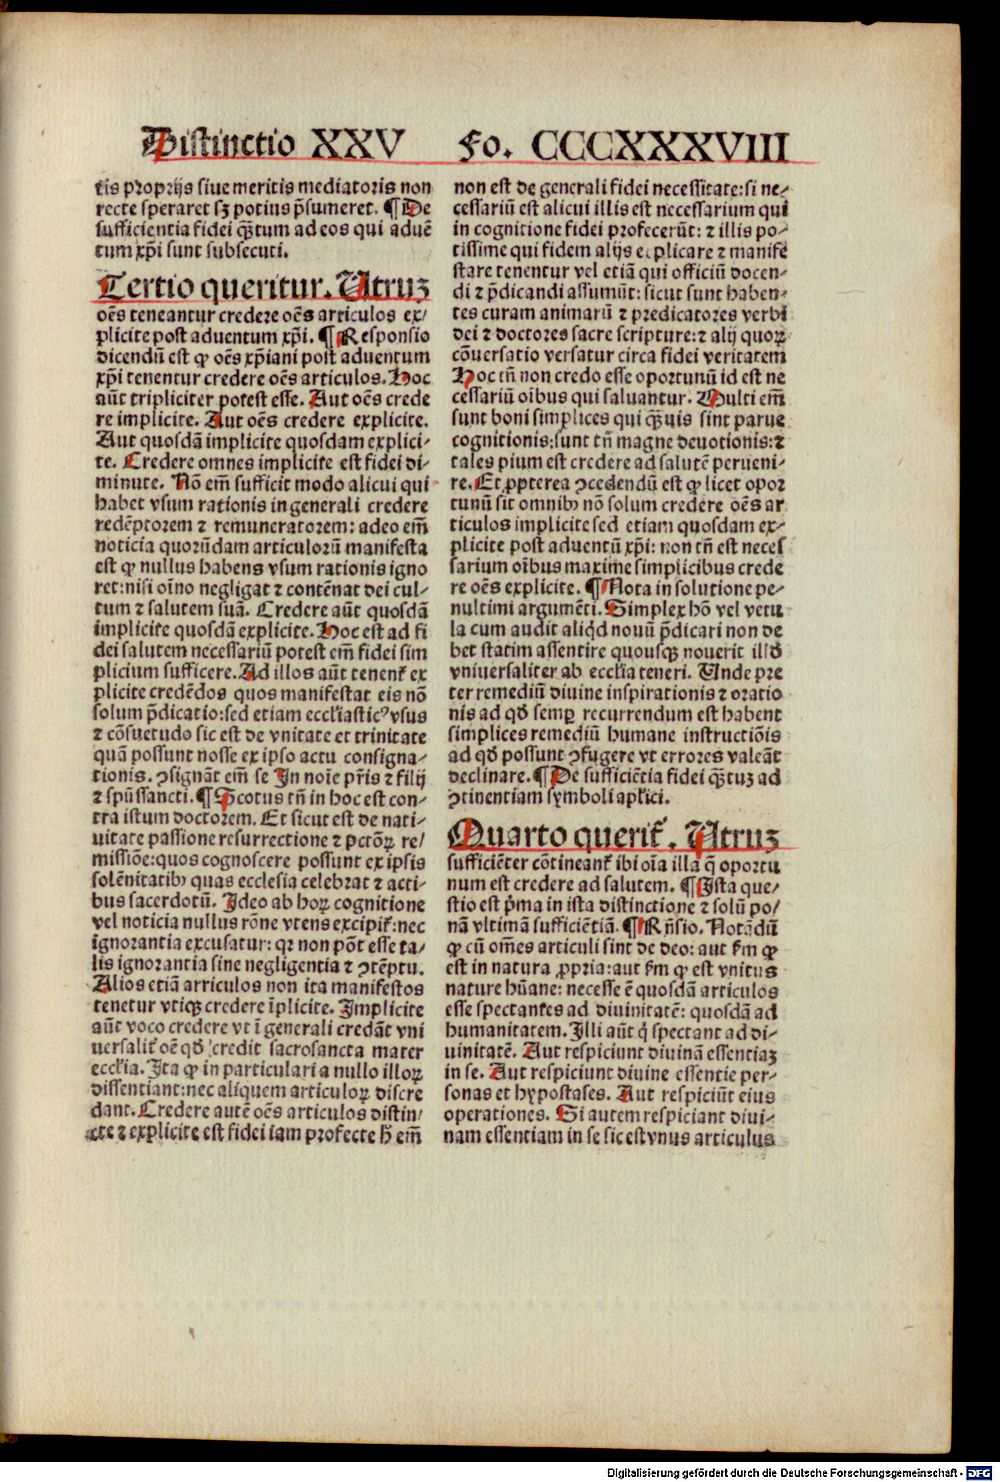 Distinctio XXV Fo. CCCXXXVIII
tis proprijs siue meritis mediatoris non
recte speraret sꝫ potius p̄sumeret. ¶ De
sufficientia fidei qꝫ̄tum ad eos qui aduē
tum xp̄i sunt subsecuti.
Tertio queritur. Utruꝫ
oēs teneantur credere oēs articulos ex/
plicite post aduentum xp̄i. ¶ Responsio
dicendū est ꝙ oēs xp̄iani post aduentum
xp̄i tenentur credere oēs articulos. Hoc
aūt tripliciter potest esse. Aut oēs crede
re implicite. Aut oēs credere explicite.
Aut quosdā implicite quosdam explici-
te. Credere omnes implicite est fidei di-
minute. Nō em̄ sufficit modo alicui qui
habet vsum rationis in generali credere
redēptorem ⁊ remuneratorem: adeo em̄
noticia quorūdam articulorū manifesta
est ꝙ nullus habens vsum rationis igno
ret: nisi oīno negligat ⁊ contēnat dei cul-
tum ⁊ salutem suā. Credere aūt quosdā
implicite quosdā explicite. Hoc est ad fi
dei salutem necessariū potest em̄ fidei sim
plicium sufficere. Ad illos aūt tenent̄ ex
plicite credēdos quos manifestat eis nō
solum p̄dicatio: sed etiam eccl̄iasticꝰ vsus
⁊ cōsuetudo sic est de vnitate et trinitate
quā possunt nosse ex ipso actu consigna-
tionis. ꝯsignāt em̄ se In noīe pr̄is ⁊ filij
⁊ spūssancti. ¶ Scotus tn̄ in hoc est con-
tra istum doctorem. Et sicut est de nati-
uitate passione resurrectione ⁊ pctōꝝ re/
missiōe: quos cognoscere possunt ex ipsis
solēnitatibꝫ quas ecclesia celebrat ⁊ acti-
bus sacerdotū. Ideo ab hoꝝ cognitione
vel noticia nullus rōne vtens excipit̄: nec
ignorantia excusatur: qꝛ non pōt esse ta/
lis ignorantia sine negligentia ⁊ ꝯtēptu.
Alios etiā articulos non ita manifestos
tenetur vtiqꝫ credere īplicite. Implicite
aūt voco credere vt ī generali credāt vni
uersalit̄ oē qđ credit sacrosancta mater
eccl̄ia. Ita ꝙ in particulari a nullo illoꝝ
dissentiant: nec aliquem articuloꝝ discre
dant. Credere autē oēs articulos distin/
cte ⁊ explicite est fidei iam profecte h̄ em̄
non est de generali fidei necessitate: si ne-
cessariū est alicui illis est necessarium qui
in cognitione fidei profecerūt: ⁊ illis po-
tissime qui fidem alijs explicare ⁊ manife
stare tenentur vel etiā qui officiū docen-
di ⁊ p̄dicandi assumūt: sicut sunt haben-
tes curam animarū ⁊ predicatores verbi
dei ⁊ doctores sacre scripture: ⁊ alij quoꝝ
cōuersatio versatur circa fidei veritatem
Hoc tn̄ non credo esse oportunū id est ne
cessariū oībus qui saluantur. Multi em̄
sunt boni simplices qui qꝫ̄uis sint parue
cognitionis: sunt tn̄ magne deuotionis: ⁊
tales pium est credere ad salutē perueni-
re. Et ꝓpterea ꝯcedendū est ꝙ licet opor
tunū sit omnibꝫ nō solum credere oēs ar
ticulos implicite sed etiam quosdam ex-
plicite post aduentū xp̄i: non tn̄ est neces
sarium oībus maxime simplicibus crede
re oēs explicite. ¶ Nota in solutione pe-
nultimi argumēti. Simplex hō vel vetu
la cum audit aliqd̄ nouū p̄dicari non de
bet statim assentire quousqꝫ nouerit illđ
vniuersaliter ab eccl̄ia teneri. Unde pre
ter remediū diuine inspirationis ⁊ oratio
nis ad qđ semꝑ recurrendum est habent
simplices remediū humane instructiōis
ad qđ possunt ꝯfugere vt errores valeāt
declinare. ¶ De sufficiētia fidei qꝫ̄tuꝫ ad
ꝯtinentiam symboli apl̄ici.
Quarto querit̄. Utruꝫ
sufficiēter cōtineant̄ ibi oīa illa q̄ oportu
num est credere ad salutem. ¶ Ista que-
stio est p̄ma in ista distinctione ⁊ solū po/
nā vltimā sufficiētiā. ¶ Rn̄sio. Notādū
ꝙ cū om̄es articuli sint de deo: aut s̄m ꝙ
est in natura ꝓpria: aut s̄m ꝙ est vnitus
nature hūane: necesse ē quosdā articulos
esse spectantes ad diuinitatē: quosdā ad
humanitatem. Illi aūt q̄ spectant ad di-
uinitatē. Aut respiciunt diuinā essentiaꝫ
in se. Aut respiciunt diuine essentie per-
sonas et hypostases. Aut respiciūt eius
operationes. Si autem respiciant diui-
nam essentiam in se sic est vnus articulus
Digitalisierung gefördert durch die Deutsche Forschungsgemeinschaft - DFG